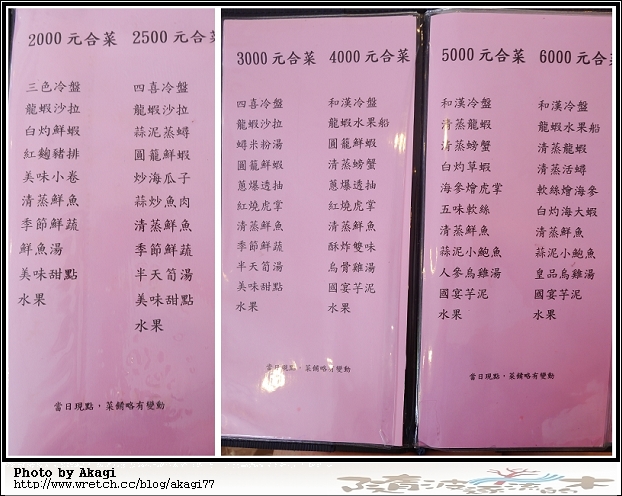 2000元合菜
三色冷盤
龍蝦沙拉
白灼鮮蝦
紅麴豬排
美味小卷
清蒸鮮魚
季節鮮蔬
鮮魚湯
美味甜點
水果
2500元合菜
四喜冷盤
龍蝦沙拉
蒜泥蒸蟳
圓籠鮮蝦
炒海瓜子
蒜炒魚肉
清蒸鮮魚
季節鮮蔬
半天筍湯
美味甜點
水果
當日現點，菜餚略有變動
3000元合菜
四喜冷盤
龍蝦沙拉
蟳米粉湯
圓籠鮮蝦
蔥爆透抽
紅燒虎掌
清蒸鮮魚
季節鮮蔬
半天筍湯
美味甜點
水果
4000元合菜
和漢冷盤
龍蝦水果船
圓籠鮮蝦
清蒸螃蟹
蔥爆透抽
紅燒虎掌
清蒸鮮魚
酥炸雙味
烏骨雞湯
國宴芋泥
水果
當日現點，菜餚略有變動
5000元合菜
和漢冷盤
清蒸龍蝦
清蒸螃蟹
白灼草蝦
海參燴虎掌
五味軟絲
清蒸鮮魚
蒜泥小鮑魚
人參烏雞湯
國宴芋泥
水果
6000元合菜
和漢冷盤
龍蝦水果船
清蒸龍蝦
清蒸活蟳
軟絲燴海參
白灼海大蝦
清蒸鮮魚
蒜泥小鮑魚
皇品烏雞湯
國宴芋泥
水果
當日現點，菜餚略有變動
Photo by Akagi
http://www.wretch.cc/blog/akagi77